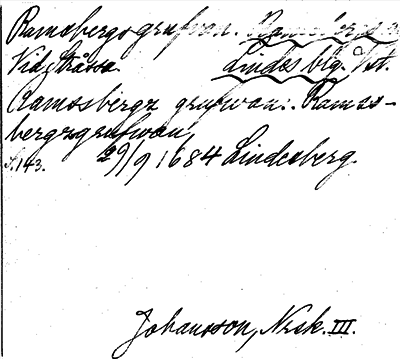 Ramsbergsgrufvan. Ramsbergs sn
Vid Stråssa. Lindes blg. Vst.
Ramssbergz grufwan: Rams-
bergzgrufwan,
S. 143. 29/9 1684 Lindesberg.
Johansson, Norsk. III.